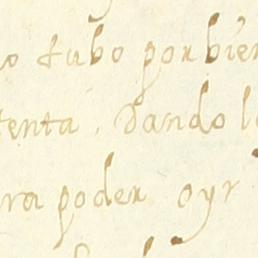 o tubo por bien
tenta, dando l
ra poder oyr